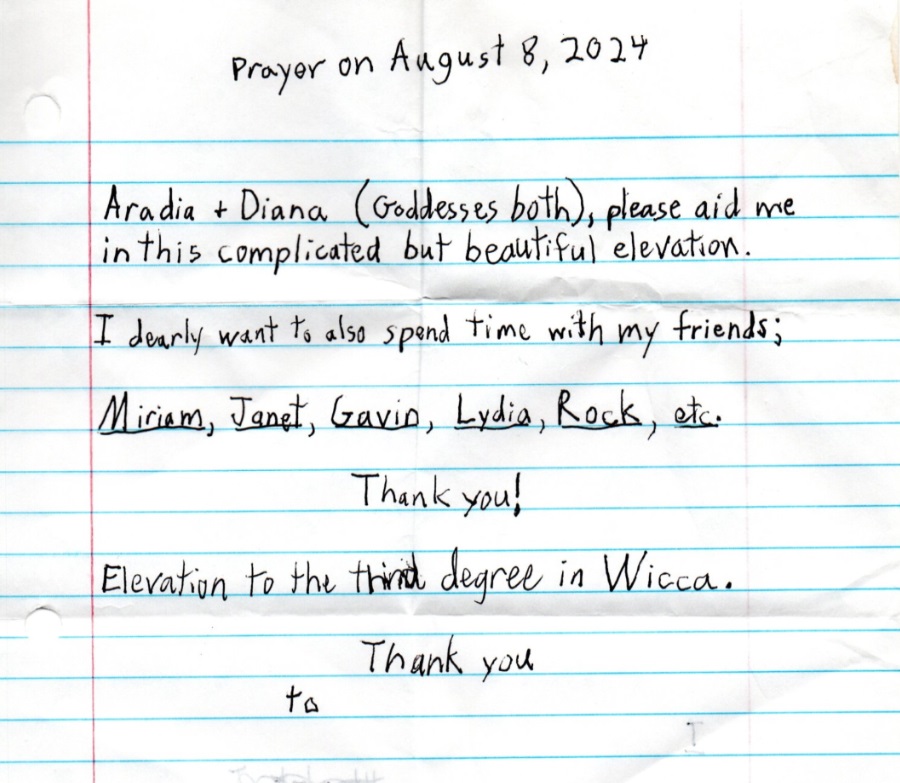 Prayer on August 8, 2024
Aradia + Diana (Goddesses both), please aid me
in this complicated but beautiful elevation.
I dearly want to also spend time with my friends;
Miriam, Janet, Gavin, Lydia, Rock, etc.
Thank you!
Elevation to the third degree in Wicca.
Thank you
to
I